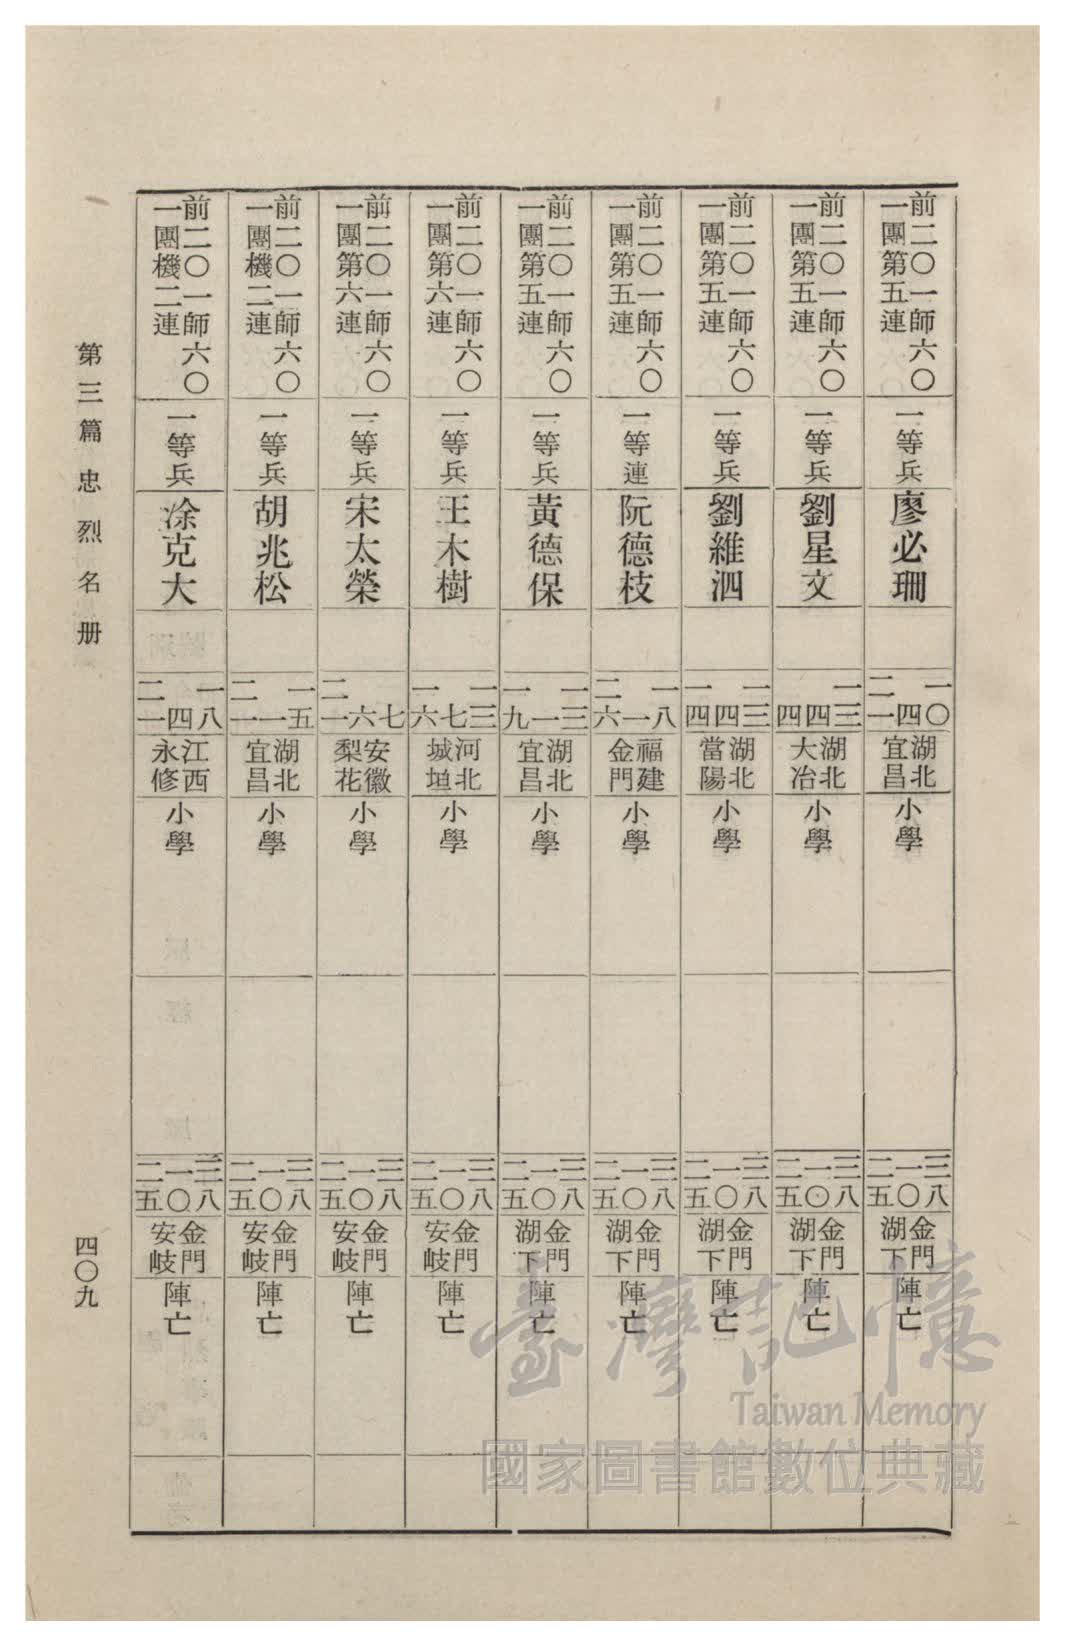 前二〇一師六〇
一團第五連
一等兵
廖必珊
一〇 四 二一
湖北
宜昌
小學
三八 一〇 二五
金門
湖下
陣亡
前二〇一師六〇
一團第五連
一等兵
劉星文
一三 四 四
湖北
大冶
小學
三八 一〇 二五
金門
湖下
陣亡
前二〇一師六〇
一團第五連
一等兵
劉維泗
一三 四 一四
湖北
當陽
小學
三八 一〇 二五
金門
湖下
陣亡
前二〇一師六〇
一團第五連
一等連
阮德枝
一八 一 二六
福建
金門
小學
三八 一〇 二五
金門
湖下
陣亡
前二〇一師六〇
一團第五連
一等兵
黃德保
一三 一 一九
湖北
宜昌
小學
三八 一〇 二五
金門
湖下
陣亡
前二〇一師六〇
一團第六連
一等兵
王木樹
一三 七 一六
河北
城垣
小學
三八 一〇 二五
金門
安岐
陣亡
前二〇一師六〇
一團第六連
一等兵
宋太榮
七 六 二一
安徽
梨花
小學
三八 一〇 二五
金門
安岐
陣亡
前二〇一師六〇
一團機二連
一等兵
胡兆松
一五 一 二一
湖北
宜昌
小學
三八 一〇 二五
金門
安岐
陣亡
前二〇一師六〇
一團機二連
一等兵
涂克大
一八 四 二一
江西
永修
小學
三八 一〇 二五
金門
安岐
陣亡
第三篇 忠烈名册
四〇九
臺灣記憶
Taiwan Memory
國家圖書館數位典藏